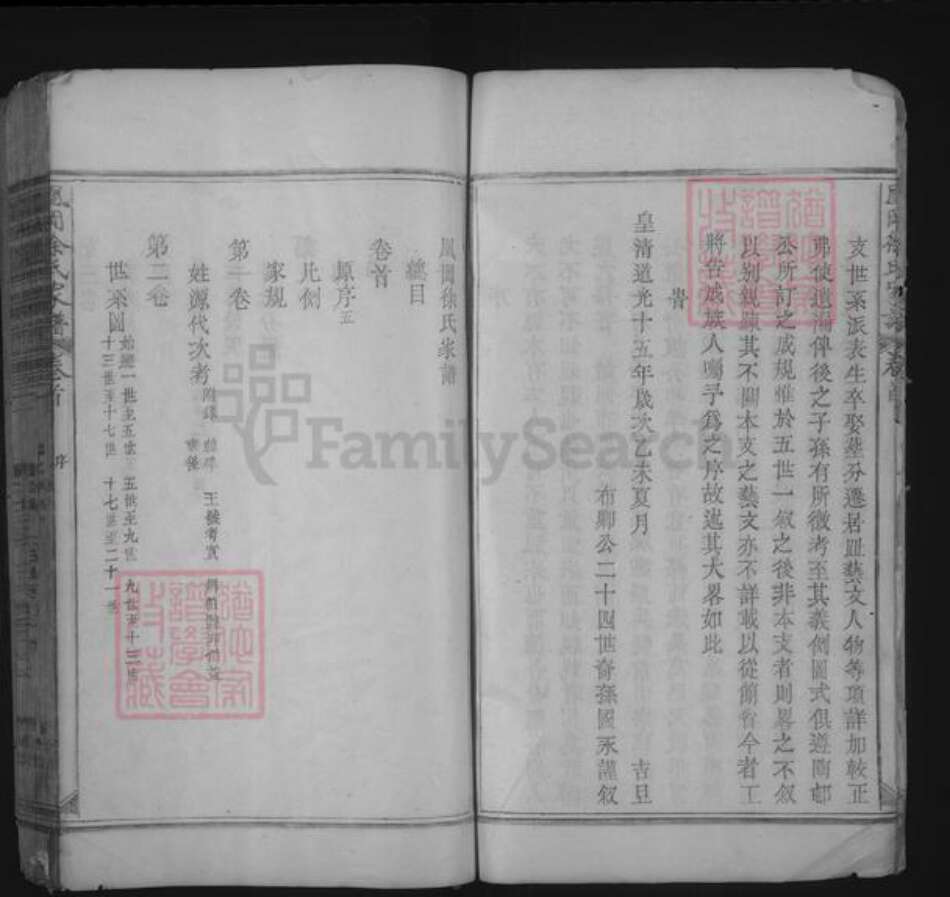 亥世系派表生卒娶塟分遷居趾藝文人物等項詳加較正
弗使遺漏俾後之子孫有所徵考至其義例圖式俱遵
公所訂之成規惟於五世一叙之後非本支者則畧之不叙
以别親疎其不關本支之藝文亦不詳載以從簡省今者工
將告成族人囑予爲之序故述其大畧如此
皇清道光十五年歲次乙未夏月 吉旦
布卿公二十四世裔孫國永謹叙
鳳岡徐氏家譜
總目
卷首
原序五
凡例
家規
第一卷
姓源代次考 附錄
第二卷
世系圖 始遷一世至五世 五世至九世 九世至十三世
十三世至十七世 十七世至二十一世
鳳岡徐氏家譜 卷首 序
FamilySearch